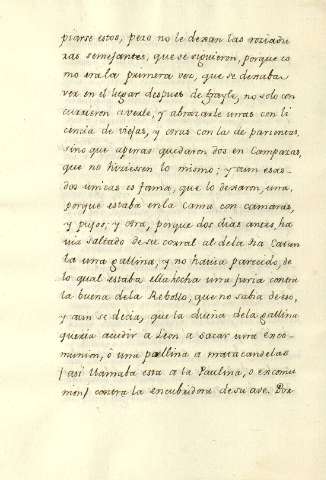 piarse estos; pero no le dexan las roziadu
ras semejantes, que se siguieron, porque co
mo era la primera vez, que se dexaba
ver en el lugar despues de frayle, no solo con
currieron a verle, y abrazarle unas con li
cencia de viejas, y otras con la de parientas,
sino que apenas quedaron dos en Campazas,
que no hiziessen lo mismo; y aun esas
dos unicas es fama, que lo dexaron, una,
porque estaba en la cama con camaras,
y pujos; y otra, porque dos dias antes, ha
via saltado de su corral al de la tia
la una gallina, y no havia parecido, de
lo qual estaba ella hecha una furia contra
la buena de la Rebollo, que no sabia de eso,
y aun se decia, que la dueña de la gallina
queria acudir a Leon a sacar una exco-
munion, ò una paullina a mata candelas
(asi llamaba esta a la Paulina, o excomu
nion) contra la encubridora de su ave. Por